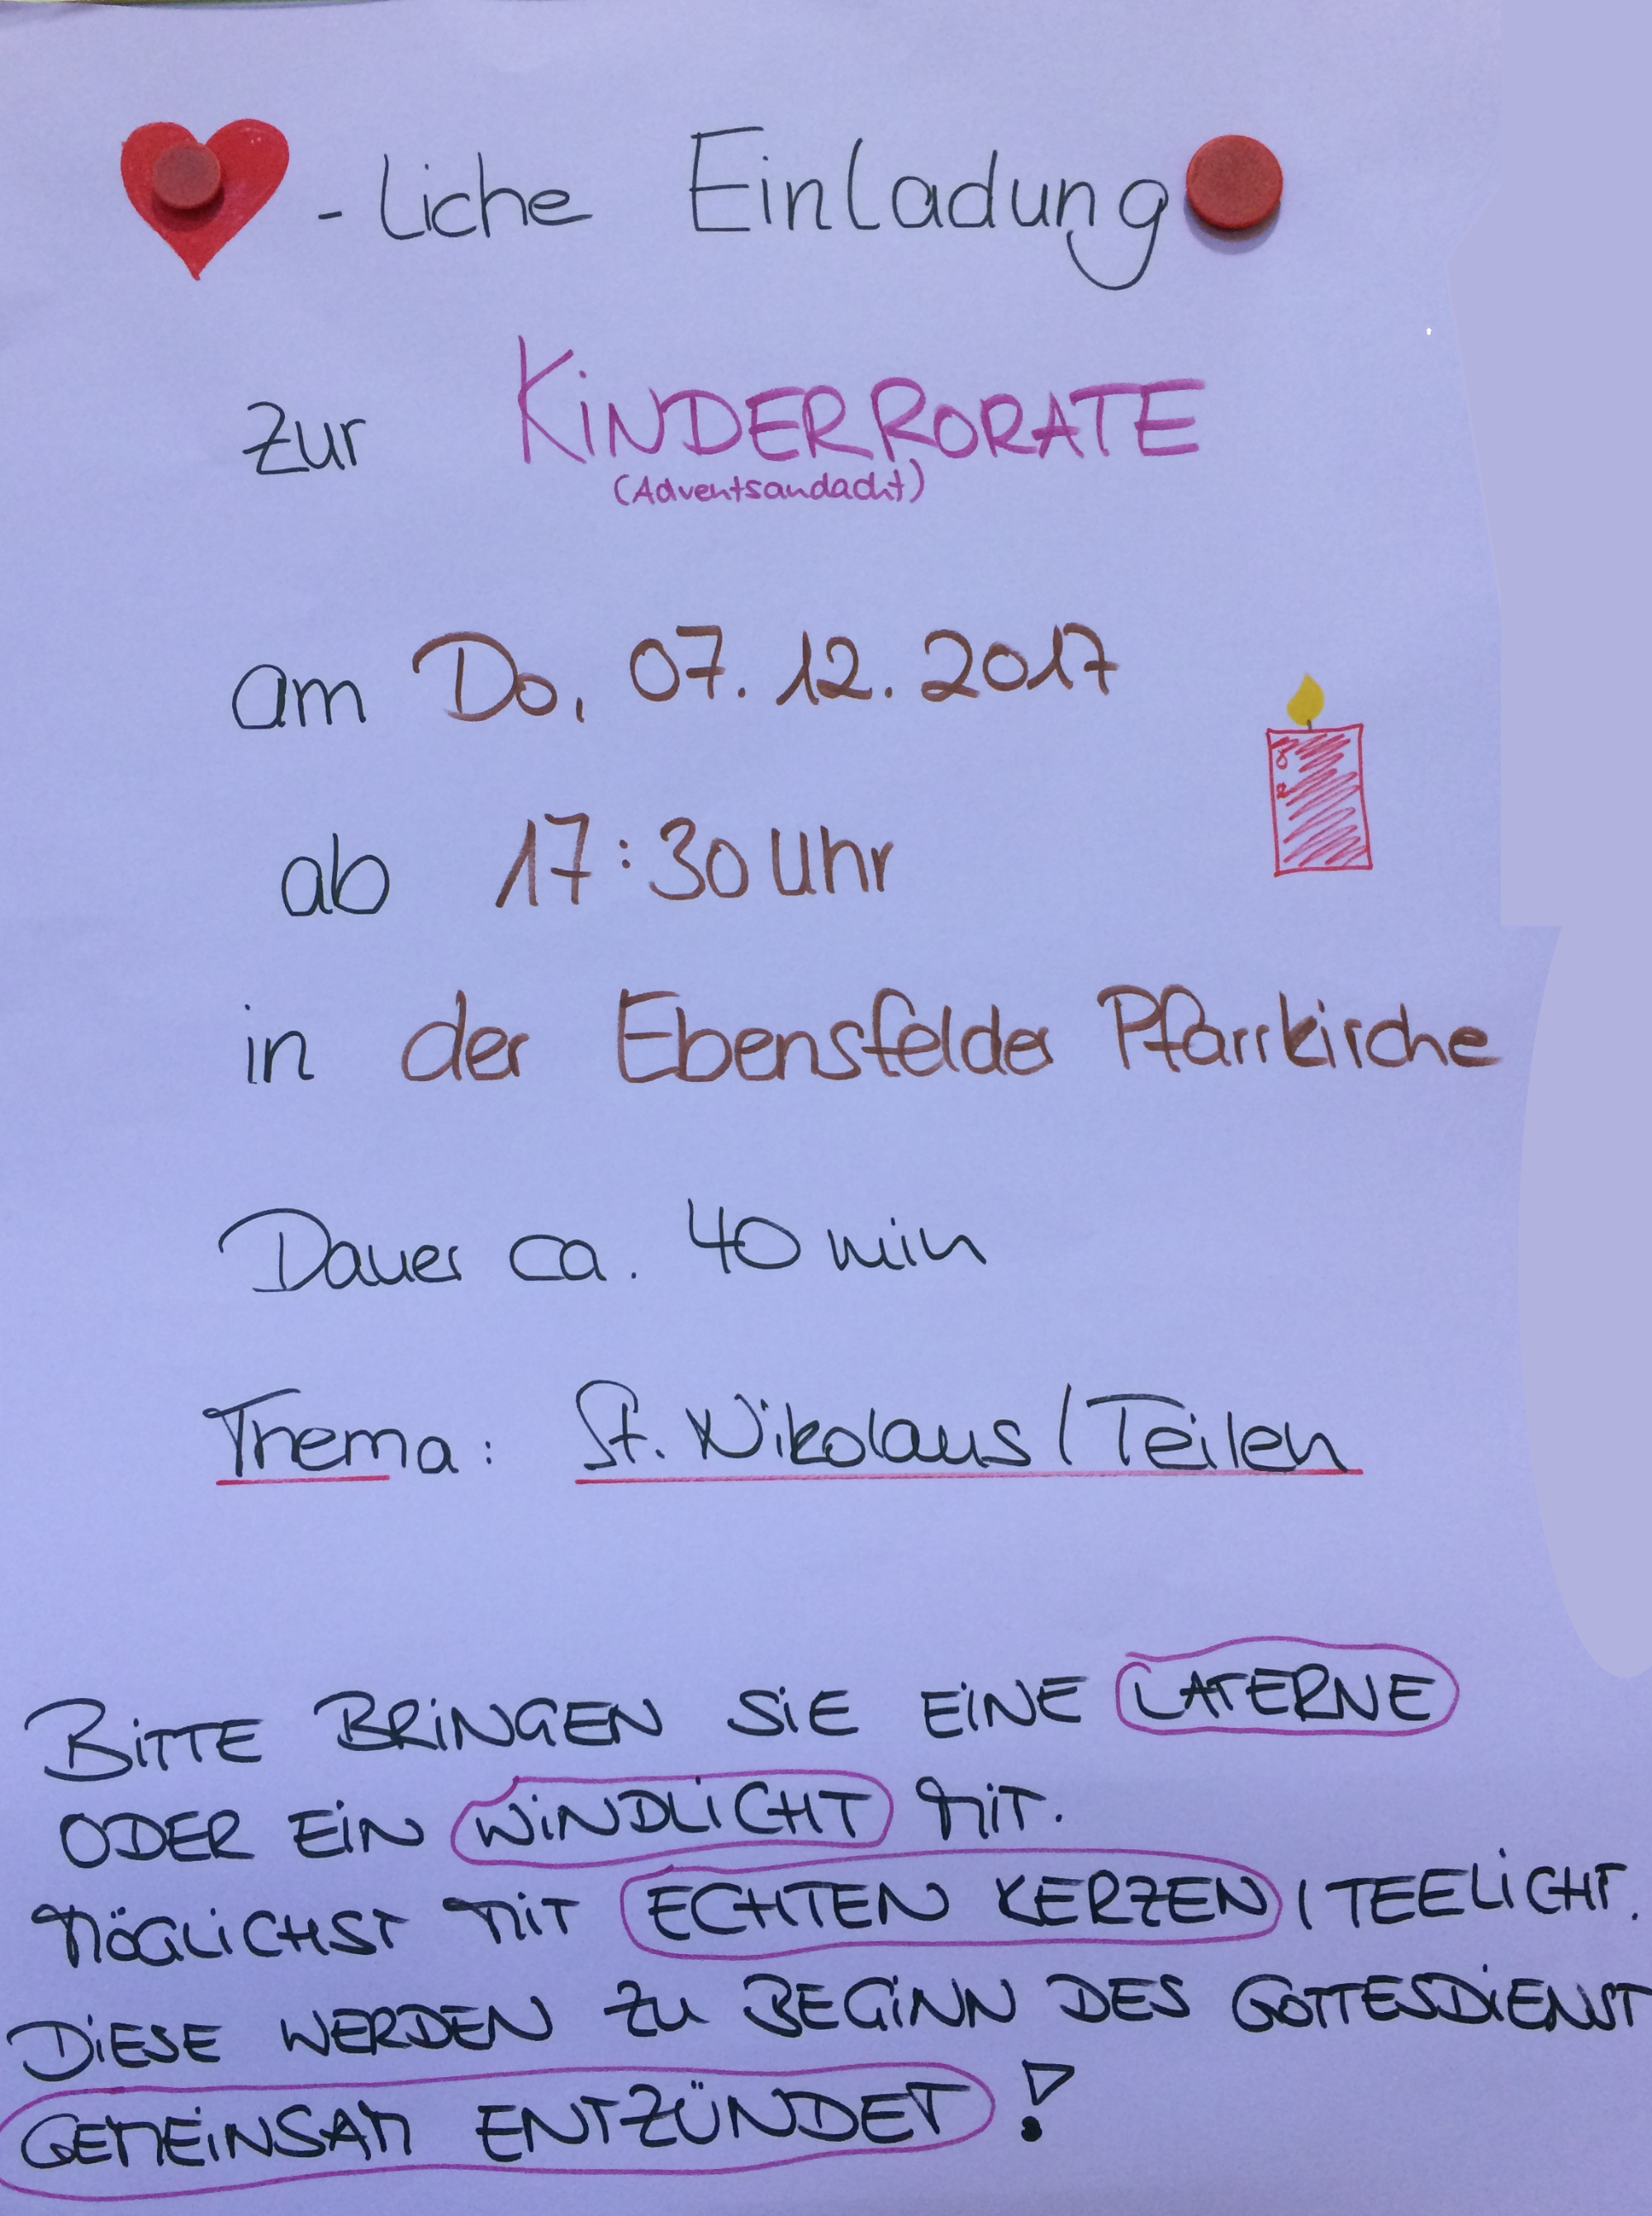 -liche Einladung
zur KINDERRORATE
(Adventsandacht)
am Do, 07.12.2017
ab 17:30 Uhr
in der Ebensfelder Pfarrkirche
Dauer ca. 40 min
Thema: St. Nikolaus / Teilen
BITTE BRINGEN SIE EINE LATERNE
ODER EIN WINDLICHT MIT.
MÖGLICHST MIT ECHTEN KERZEN / TEELICHT.
DIESE WERDEN ZU BEGINN DES GOTTESDIENST
GEMEINSAM ENTZÜNDET!